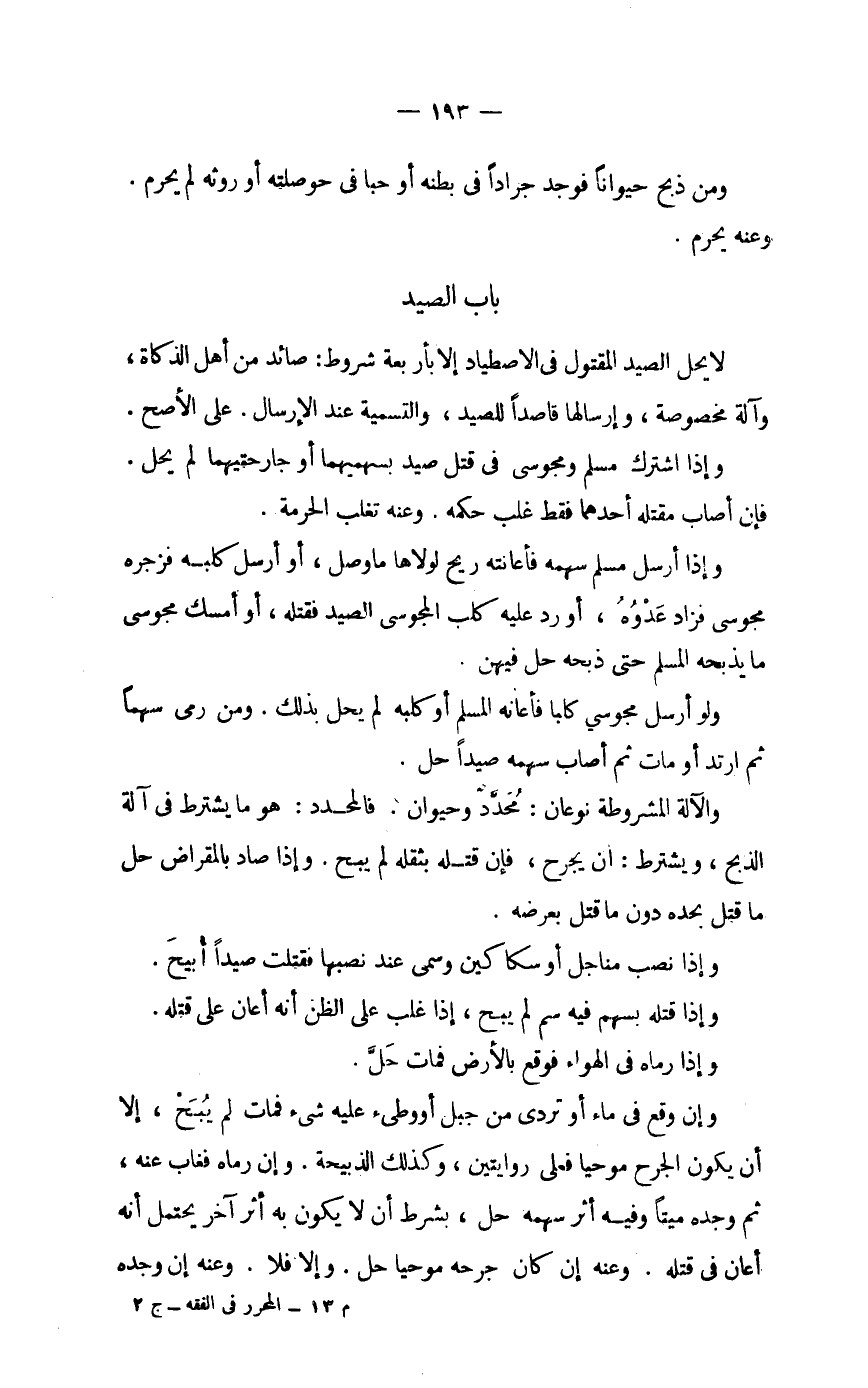 — ١٩٣ —
ومن ذبح حيواناً فوجد جراداً فى بطنه أو حبا فى حوصلته أو روثه لم يحرم .
وعنه يحرم .
باب الصيد
لا يحل الصيد المقتول فى الاصطياد إلا بأربعة شروط : صائد من أهل الذكاة ،
وآلة مخصوصة ، وإرسالها قاصداً للصيد ، والتسمية عند الإرسال . على الأصح .
وإذا اشترك مسلم ومجوسى فى قتل صيد بسهميهما أو جارحتيهما لم يحل .
فإن أصاب مقتله أحدهما فقط غلب حكمه . وعنه تغلب الحرمة .
وإذا أرسل مسلم سهمه فأعانته ريح لولاها ماوصل ، أو أرسل كلبـه فزجره
مجوسى فزاد عَدْوُهُ ، أو رد عليه كلب المجوسى الصيد فقتله ، أو أمسك مجوسى
ما يذبحه المسلم حتى ذبحه حل فيهن .
ولو أرسل مجوسي كابا فأعانه المسلم أو كلبه لم يحل بذلك . ومن رمى سهماً
ثم ارتد أو مات ثم أصاب سهمه صيداً حل .
والآلة المشروطة نوعان : مُحَدَّدٌ وحيوان . فالمحـدد : هو ما يشترط فى آلة
الذبح ، ويشترط : أن يجرح ، فإن قتـله بثقله لم يبح . وإذا صاد بالمقراض حل
ما قتل بحده دون ما قتل بعرضه .
وإذا نصب مناجل أو سكاكين وسمى عند نصبها فقتلت صيداً أُبيحَ .
وإذا قتله بسهم فيه سم لم يبح ، إذا غلب على الظن أنه أعان على قتله .
وإذا رماه فى الهواء فوقع بالأرض فمات حَلَّ .
وإن وقع فى ماء أو تردى من جبل أو وطىء عليه شىء فمات لم يُبَحْ ، إلا
أن يكون الجرح موحيا فعلى روايتين ، وكذلك الذبيحة . وإن رماه فغاب عنه ،
ثم وجده ميتاً وفيـه أثر سهمه حل ، بشرط أن لا يكون به أثر آخر يحتمل أنه
أعان فى قتله . وعنه إن كان جرحه موحيا حل . وإلا فلا . وعنه إن وجده
م ١٣ ــ المحرر فى الفقه ــ ج ٢